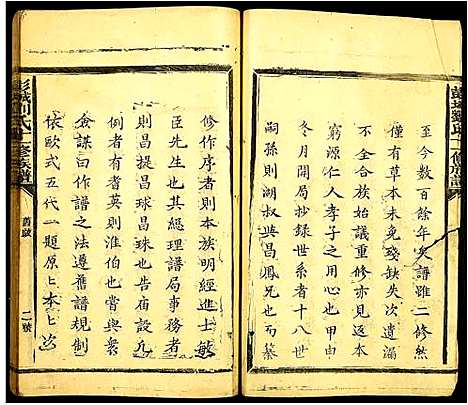 至今數百餘年矣譜雖二修然
僅有草本未免殘缺失次遺漏
不全合族始議重修亦見返本
窮源仁人孝子之用心也甲申
冬月開局抄錄世系者十八世
嗣孫則湖與昌鳳兄也而纂
修作序者則本族明經進士敏
臣先生也其總理譜局事務者
則昌提昌球昌珠也告廟設凢
例者有耆英則淮伯也嘗與衆
僉謀曰作譜之法遵舊譜規制
依歐式五代一題原〻本〻次
彭城刘氏二修族譜
舊跋
二號